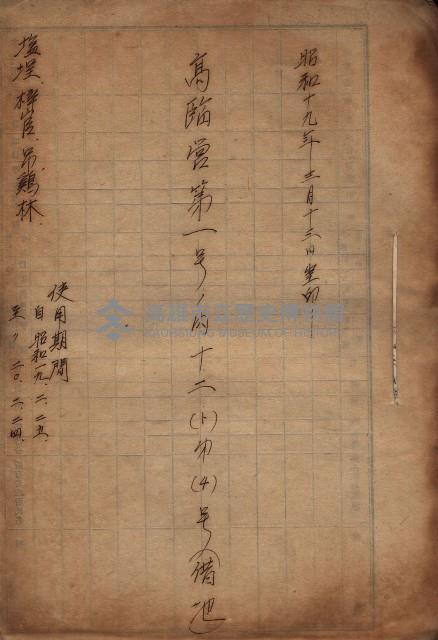 昭和十九年十二月十三日
高臨営第一号ノ内十二(ト)ノ(4)号(借地)
塩埕、梓官、吊鶏林
使用期間
自 昭和一九、二、二五
至 〃 二〇、二、二四
高雄市立歷史博物館
KAOHSIUNG MUSEUM OF HISTORY